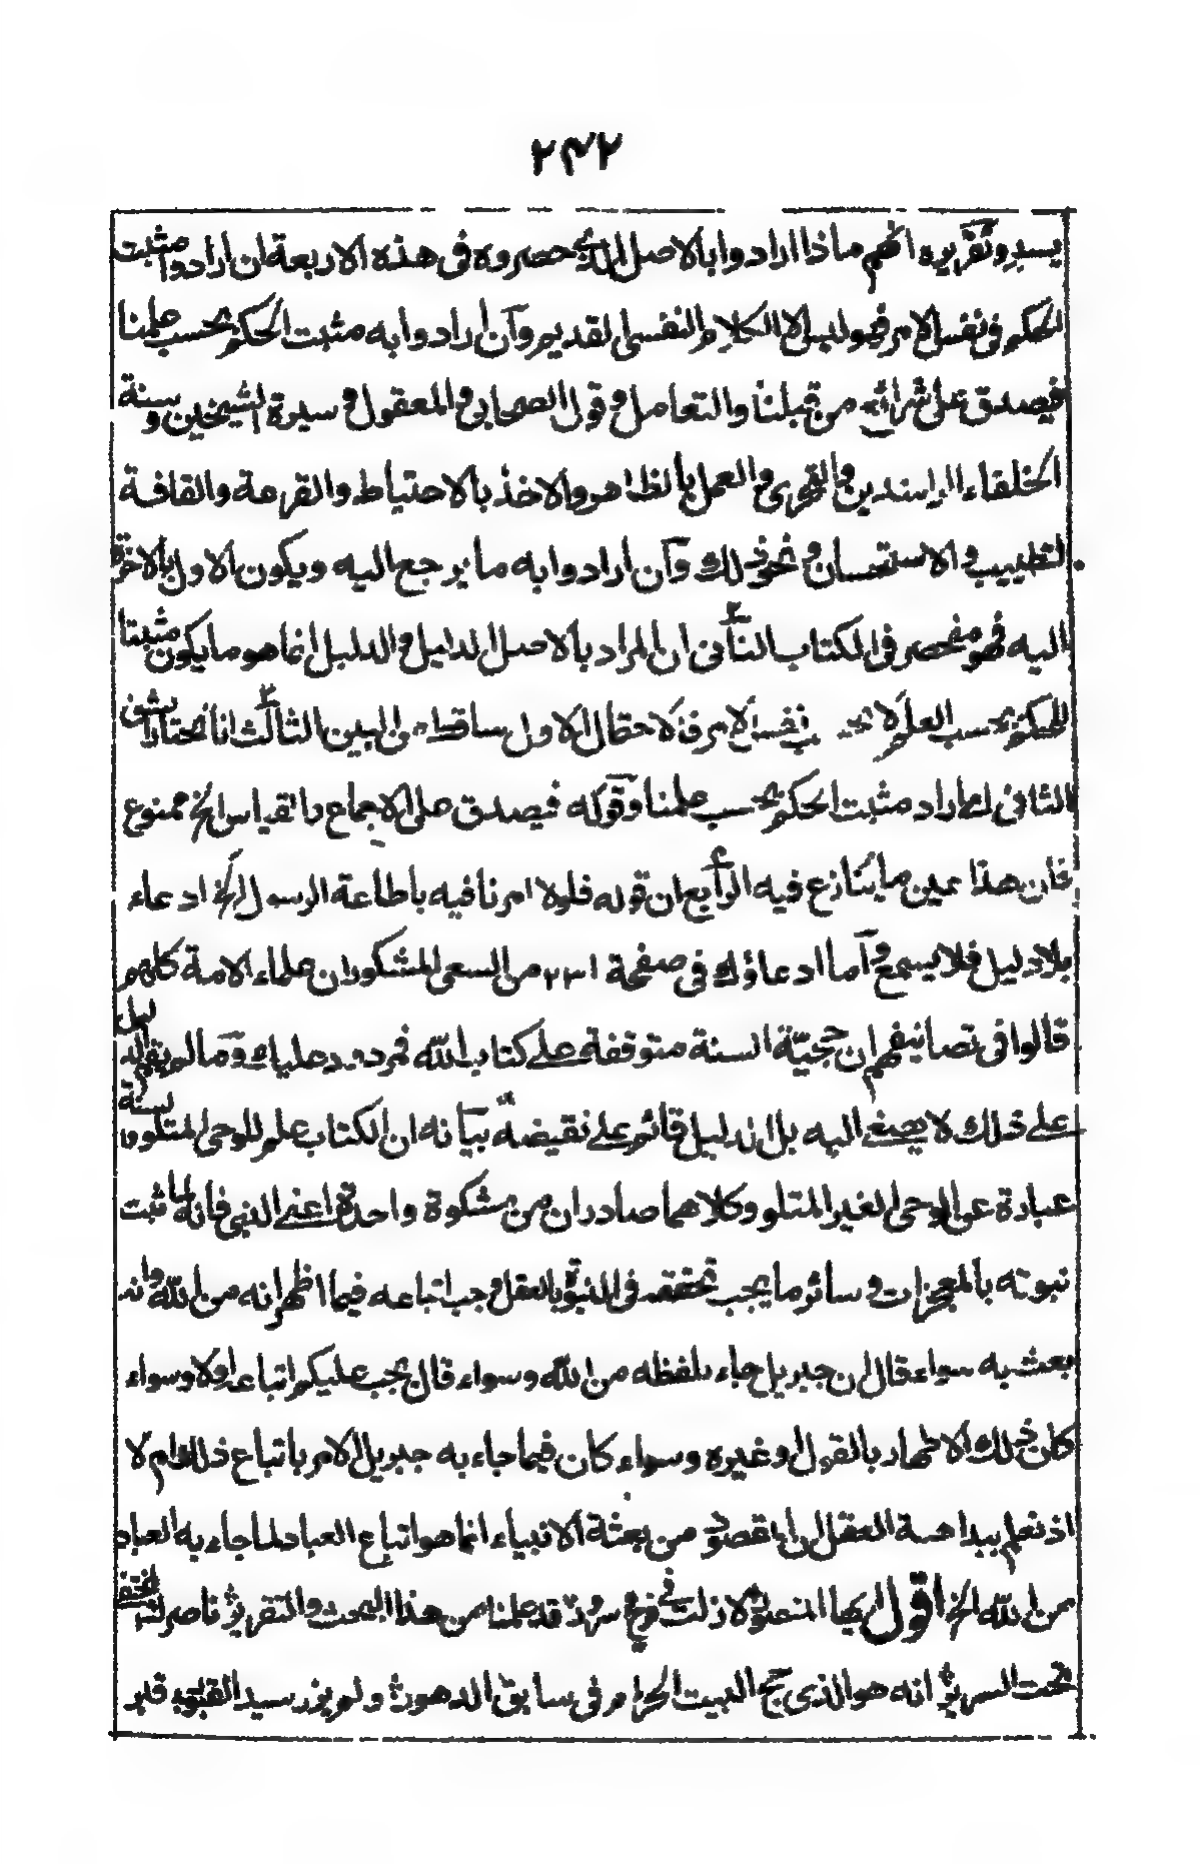 ٢٤٢
يسير وتقريره انهم ماذا ارادوا بالاصل الذي حصروه في هذه الاربعة ان ارادوا مثبت
الحكم في نفس الامر فهو ليس الا الكلام النفسي القديم وآن ارادوا به مثبت الحكم بحسب علمنا
فيصدق على شرائع من قبلنا والتعامل وقول الصحابي والمعقول وسيرة الشيخين وسنة
الخلفاء الراشدين والتحري والعمل بالظاهر والاخذ بالاحتياط والقرعة والقافة
لتطييب والاستحسان ونحو ذلك وآن ارادوا به ما يرجع اليه ويكون الاول بالاخرة
اليه فهو منحصر في الكتاب الثاني ان المراد بالاصل الدليل والدليل انما هو ما يكون مثبتا
للحكم بحسب العلم لا بحسب نفس الامر فالاحتمال الاول ساقط من البين الثالث انا نختار الشق
الثاني اي اراد مثبت الحكم بحسب علمنا وقوله فيصدق على الاجماع والقياس الخ ممنوع
فان هذا عين ما يتنازع فيه الرابع ان قوله فلولا امرنا فيه باطاعة الرسول الخ ادعاء
بلا دليل فلا يسمع وآما ادعاؤك في صفحة ٢٣١ من السعي المشكور ان علماء الامة كلهم
قالوا في تصانيفهم ان حجيّة السنة متوقفة على كتاب الله فمردود عليك وما لم يقم الدليل
على ذلك لا يصغى اليه بل الدليل قائم على نقيضه بيانه ان الكتاب علم للوحي المتلو والسنة
عبارة عن الوحي الغير المتلو وكلاهما صادران من مشكوة واحدة اعني النبي فانه لما ثبت
نبوته بالمعجزات وسائر ما يجب تحققه في النبوة بالعقل وجب اتباعه فيما اظهر انه من الله وانه
بعث به سواء قال ان جبريل جاء بلفظه من الله وسواء قال يجب عليكم اتباعه اولا وسواء
كان ذلك الاظهار بالقول او غيره وسواء كان فيما جاء به جبريل الامر باتباع ذلك ام لا
اذ نعلم ببداهة العقل ان المقصود من بعثة الانبياء انما هو اتباع العباد لما جاء به العباد
من الله الخ اقول ايها المنصور لا زلت في فرح وسرور قد علمنا من هذا البحث والتقرير ناصرك المختفي
تحت السرير انه هو الذي حج البيت الحرام في سابق الدهور ولم يزر سيد القبور قبر